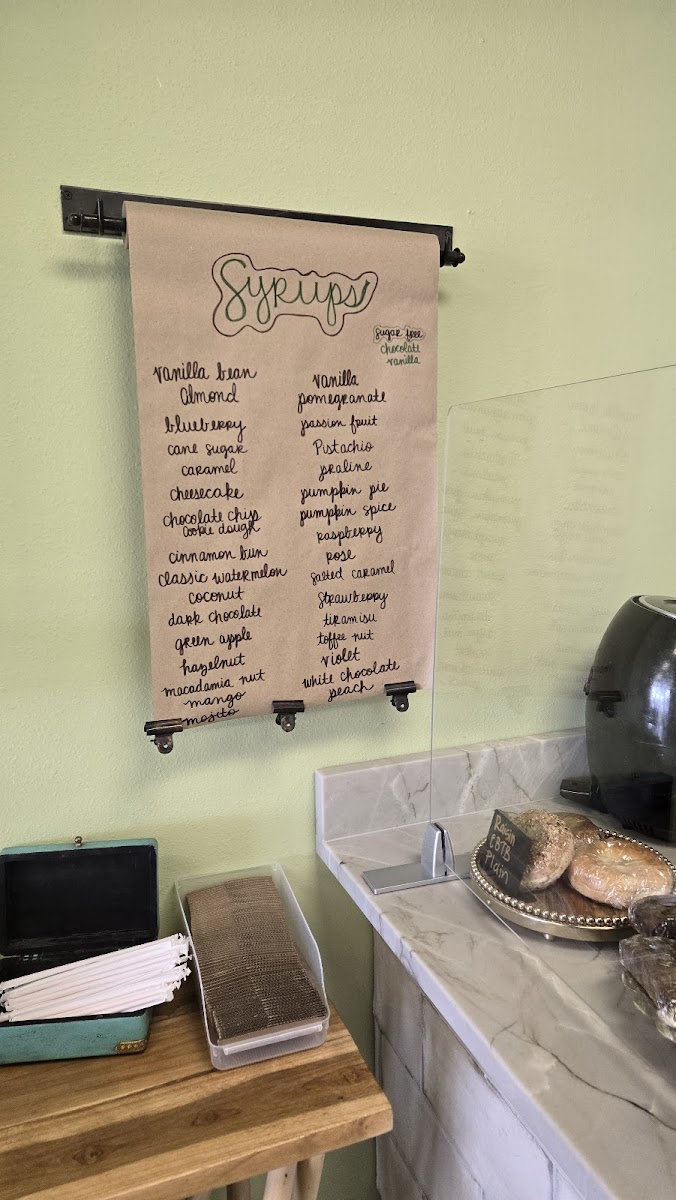 Syrups
sugar free
chocolate
vanilla
vanilla bean
Almond
blueberry
cane sugar
caramel
cheesecake
chocolate chip
cookie dough
cinnamon bun
classic watermelon
coconut
dark chocolate
green apple
hazelnut
macadamia nut
mango
mojito
vanilla
pomegranate
passion fruit
Pistachio
praline
pumpkin pie
pumpkin spice
raspberry
rose
salted caramel
strawberry
tiramisu
toffee nut
violet
white chocolate
peach
Raisin
EBTB
Plain